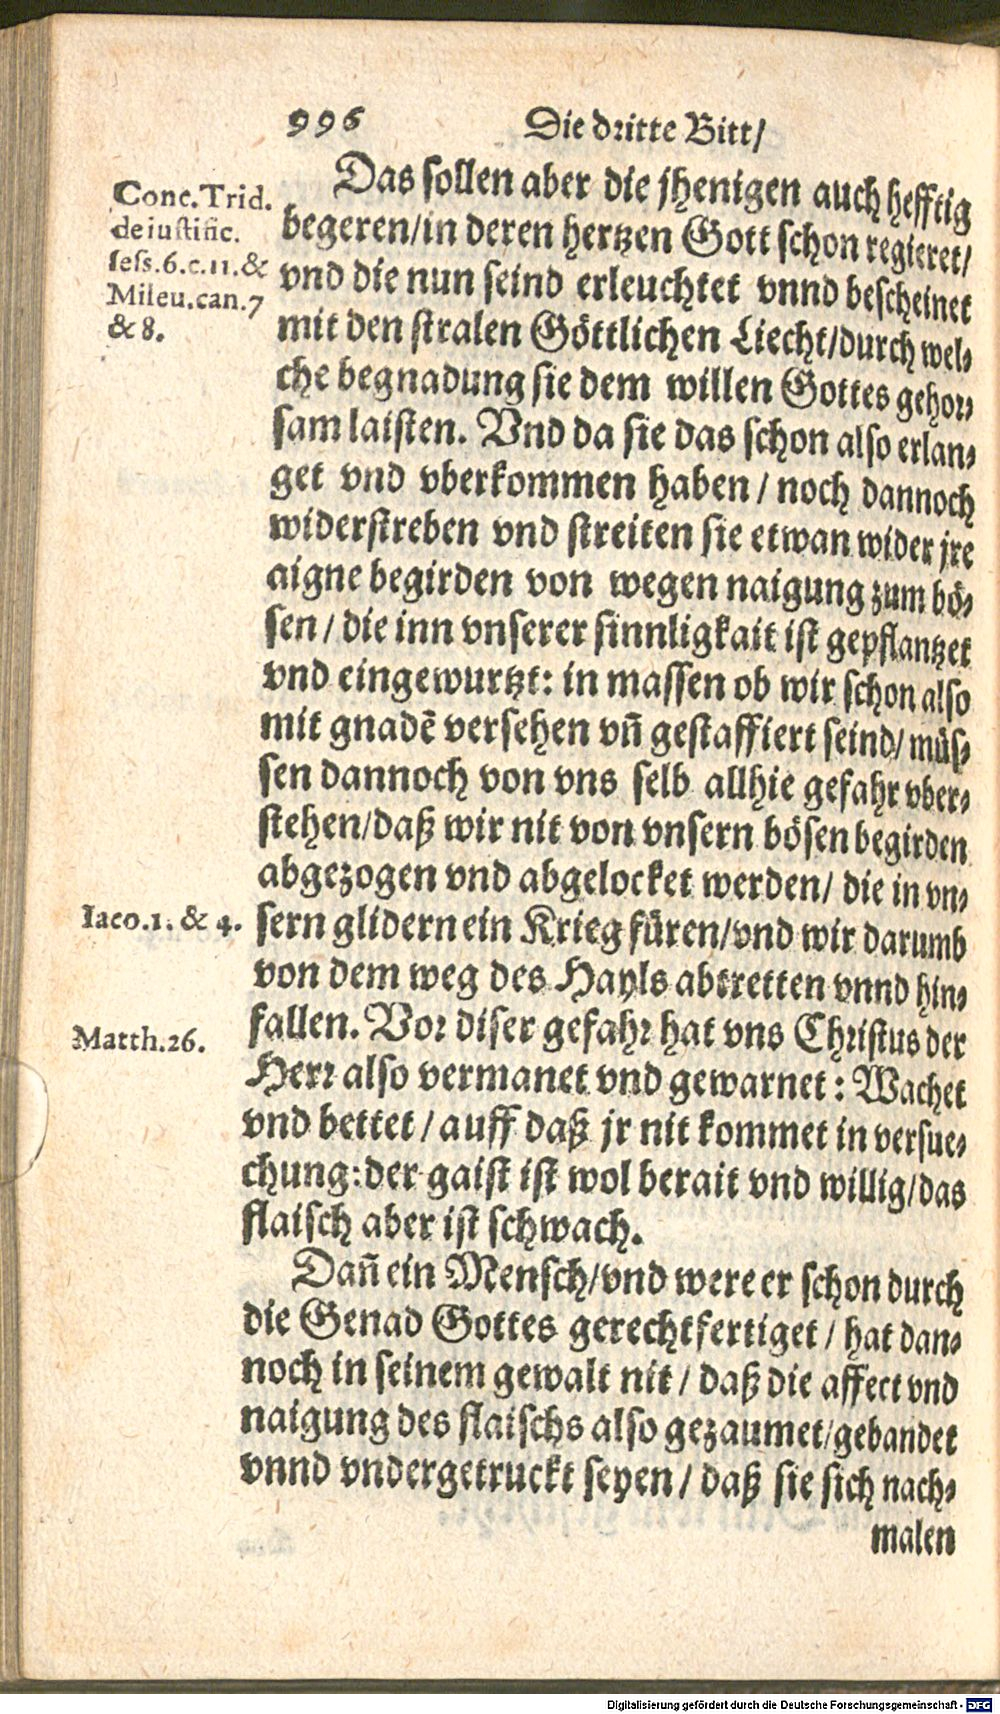 996
Die dritte Bitt/
Conc. Trid.
de iustific.
sess. 6. c. 11. &
Mileu. can. 7
& 8.
Das sollen aber die jhenigen auch hefftig
begeren/in deren hertzen Gott schon regieret/
vnd die nun seind erleuchtet vnnd bescheinet
mit den stralen Göttlichen Liecht/durch wel-
che begnadung sie dem willen Gottes gehor-
sam laisten. Vnd da sie das schon also erlan-
get vnd vberkommen haben / noch dannoch
widerstreben vnd streiten sie etwan wider jre
aigne begirden von wegen naigung zum bö-
sen / die inn vnserer sinnligkait ist gepflantzet
vnd eingewurtzt: in massen ob wir schon also
mit gnadē versehen vñ gestaffiert seind/ müs-
sen dannoch von vns selb allhie gefahr vber-
stehen/daß wir nit von vnsern bösen begirden
abgezogen vnd abgelocket werden/ die in vn-
Iaco. 1. & 4.
sern glidern ein Krieg füren/vnd wir darumb
von dem weg des Hayls abtretten vnnd hin-
Matth. 26.
fallen. Vor diser gefahr hat vns Christus der
Herr also vermanet vnd gewarnet : Wachet
vnd bettet / auff daß jr nit kommet in versue-
chung: der gaist ist wol berait vnd willig/das
flaisch aber ist schwach.
Dañ ein Mensch/vnd were er schon durch
die Genad Gottes gerechtfertiget / hat dan-
noch in seinem gewalt nit / daß die affect vnd
naigung des flaischs also gezaumet/gebandet
vnnd vndergetruckt seyen / daß sie sich nach-
malen
Digitalisierung gefördert durch die Deutsche Forschungsgemeinschaft - DFG